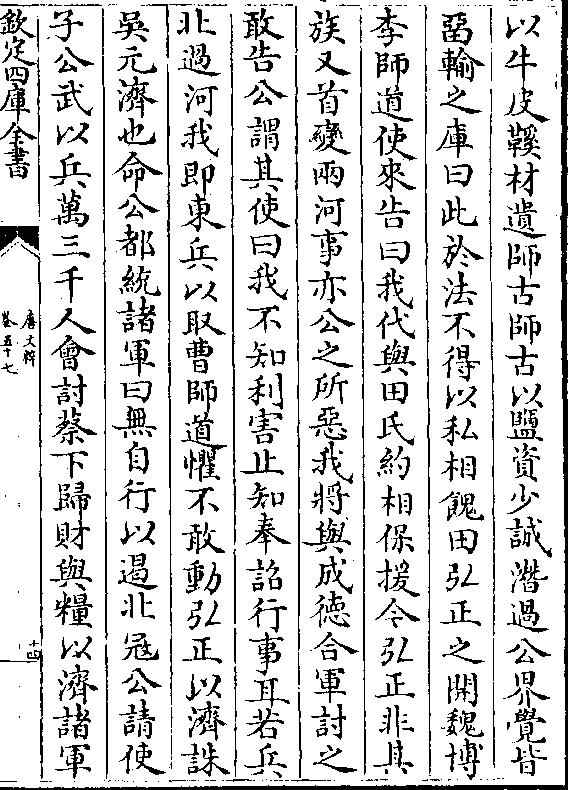 以牛皮鞵材遺師古師古以鹽資少誠潛過公界覺皆
留輸之庫曰此於法不得以私相餽田弘正之開魏博
李師道使來告曰我代與田氏約相保援今弘正非其
族又首變兩河事亦公之所惡我將與成德合軍討之
敢告公謂其使曰我不知利害止知奉詔行事耳若兵
北過河我即東兵以取曹師道懼不敢動弘正以濟誅
吳元濟也命公都統諸軍曰無自行以遏北寇公請使
子公武以兵萬三千人會討蔡下歸財與糧以濟諸軍
欽定四庫全書
唐文粹
卷五十七
十四